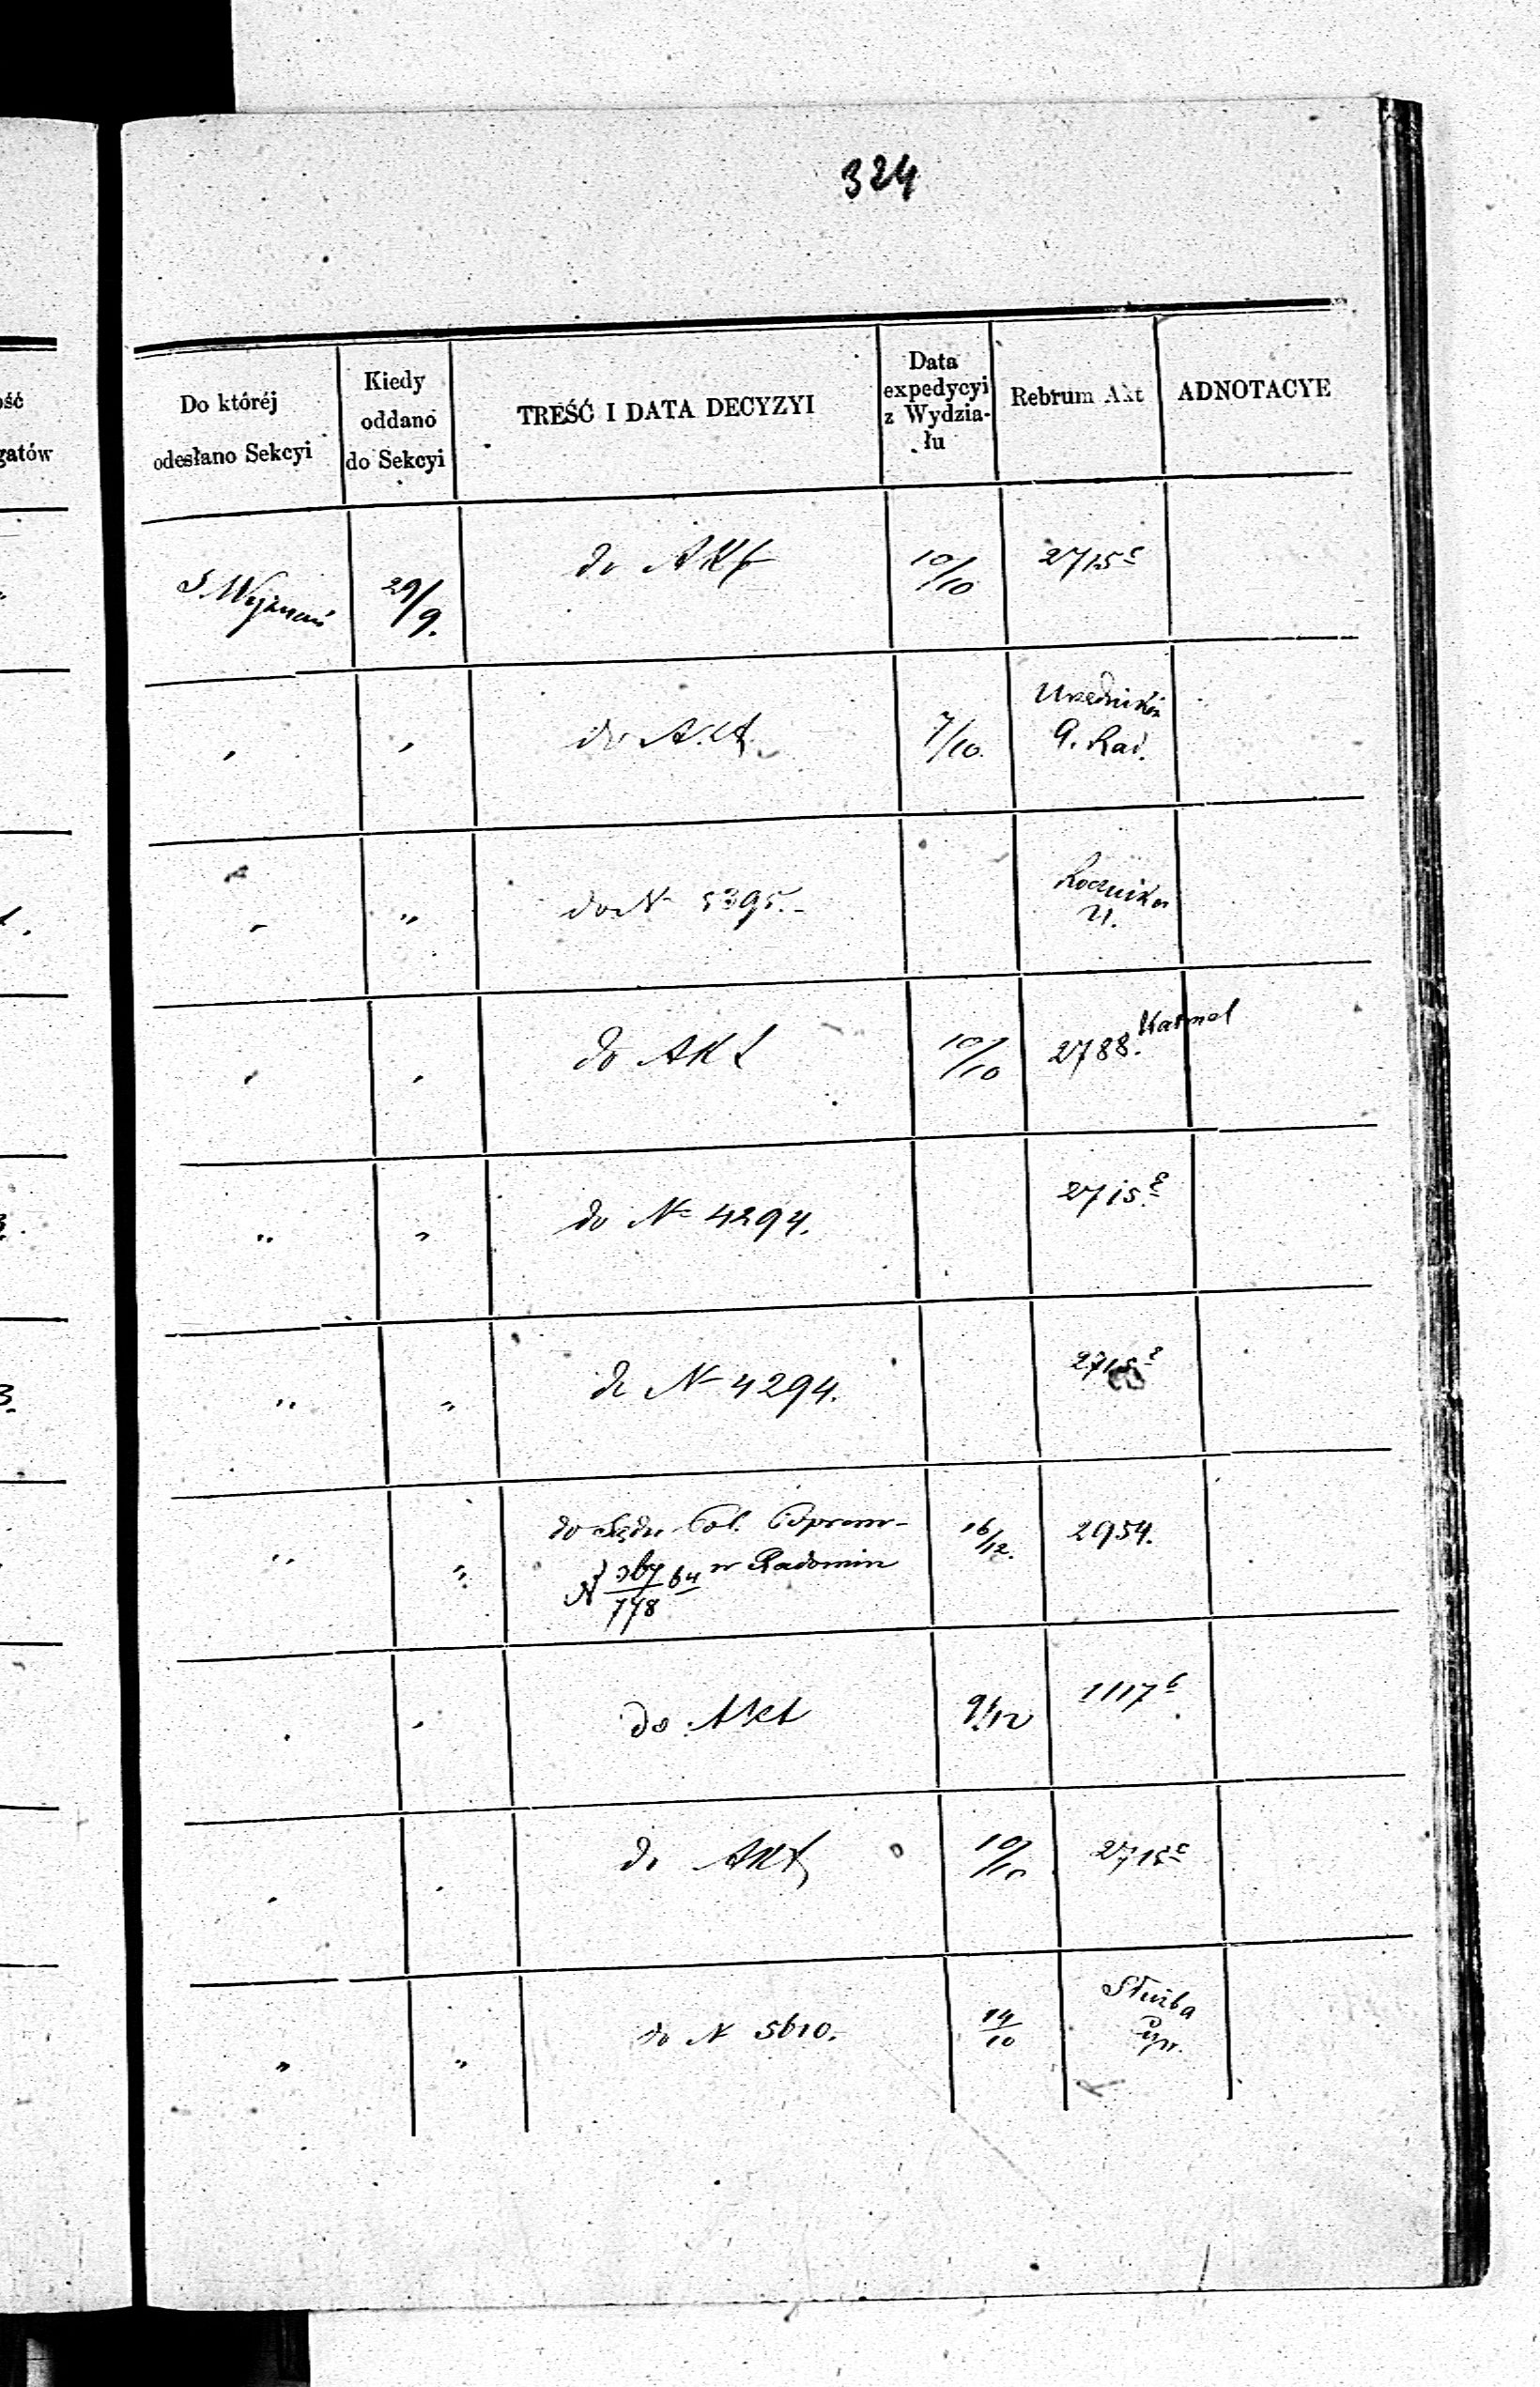 324
ść
gatów
Do któréj
odesłano Sekcyi
Kiedy
oddano
do Sekcyi
TREŚĆ I DATA DECYZYI
Data
expedycyi
z Wydzia-
łu
Rebrum Akt
ADNOTACYE
S. Wyznań 29/9. do Akt 10/10 2715 c
" " do Akt 7/10. Urzędników
G. Rad.
" " do N 5395.-
" " do Akt 10/10 2788. Karmel
" " do N 4294. 2715
" " do N 4294. 2715
" " do Sądu Pol. Popraw- 16/12. 2954.
w Radomiu
N 64
778
" " do Akt 9/12 1117
" " do Akt 10/10 2715 c
" " do N 5610. 14/10 Służba